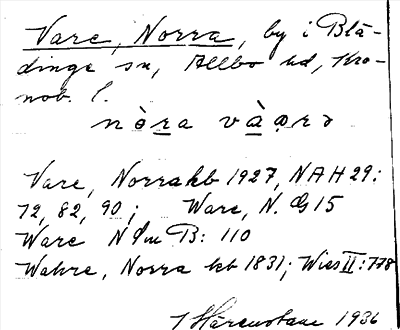 Vare, Norra, by i Blä-
dinge sn, Allbo hd, Kro-
nob. l.
nòra vàarə
Vare, Norra kb 1927, NAH 29:
72, 82, 90; Ware, N. GS 15
Ware N Sm B: 110
Wahre, Norra kb 1831; Wies II: 778
1936